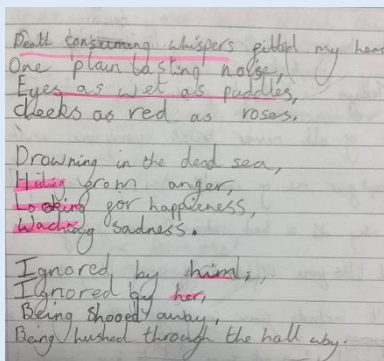 Death consuming whispers filled my head
One plain lasting noise,
Eyes as wet as puddles,
cheeks as red as roses.
Drowning in the dead sea,
Hiding from anger,
Looking for happieness,
Waching sadness.
Ignored by him,
Ignored by her,
Being shooed away,
Being hushed through the hall way.